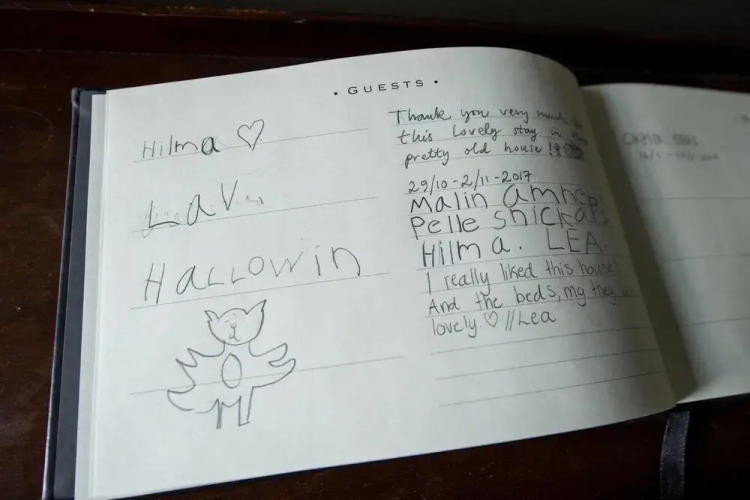 • GUESTS •
Hilma ♡
LAV
HALLOWIN
Thank you very much
this lovely stay in
pretty old house!
29/10-2/11-2017
Malin
Pelle
Hilma. LEA
I really liked this house!
And the beds, mg they
lovely. ♡ //Lea